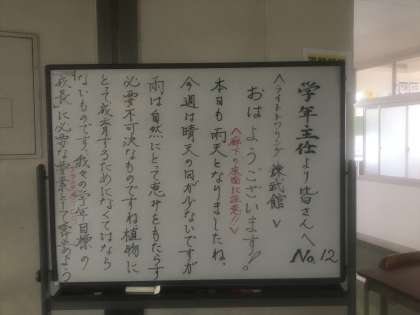 学年主任より皆さんへ No.12
＜ライトカーリング 錬武館＞
おはようございます!!
＜廊下の床面に注意!!＞
本日も雨天となりましたね。
今週は晴天の日が少ないですが
雨は自然にとって恵みをもたらす
必要不可欠なものですね植物に
とって成育するためになくてはなら
ないものです我々の学年目標の
成長に必要な要素として